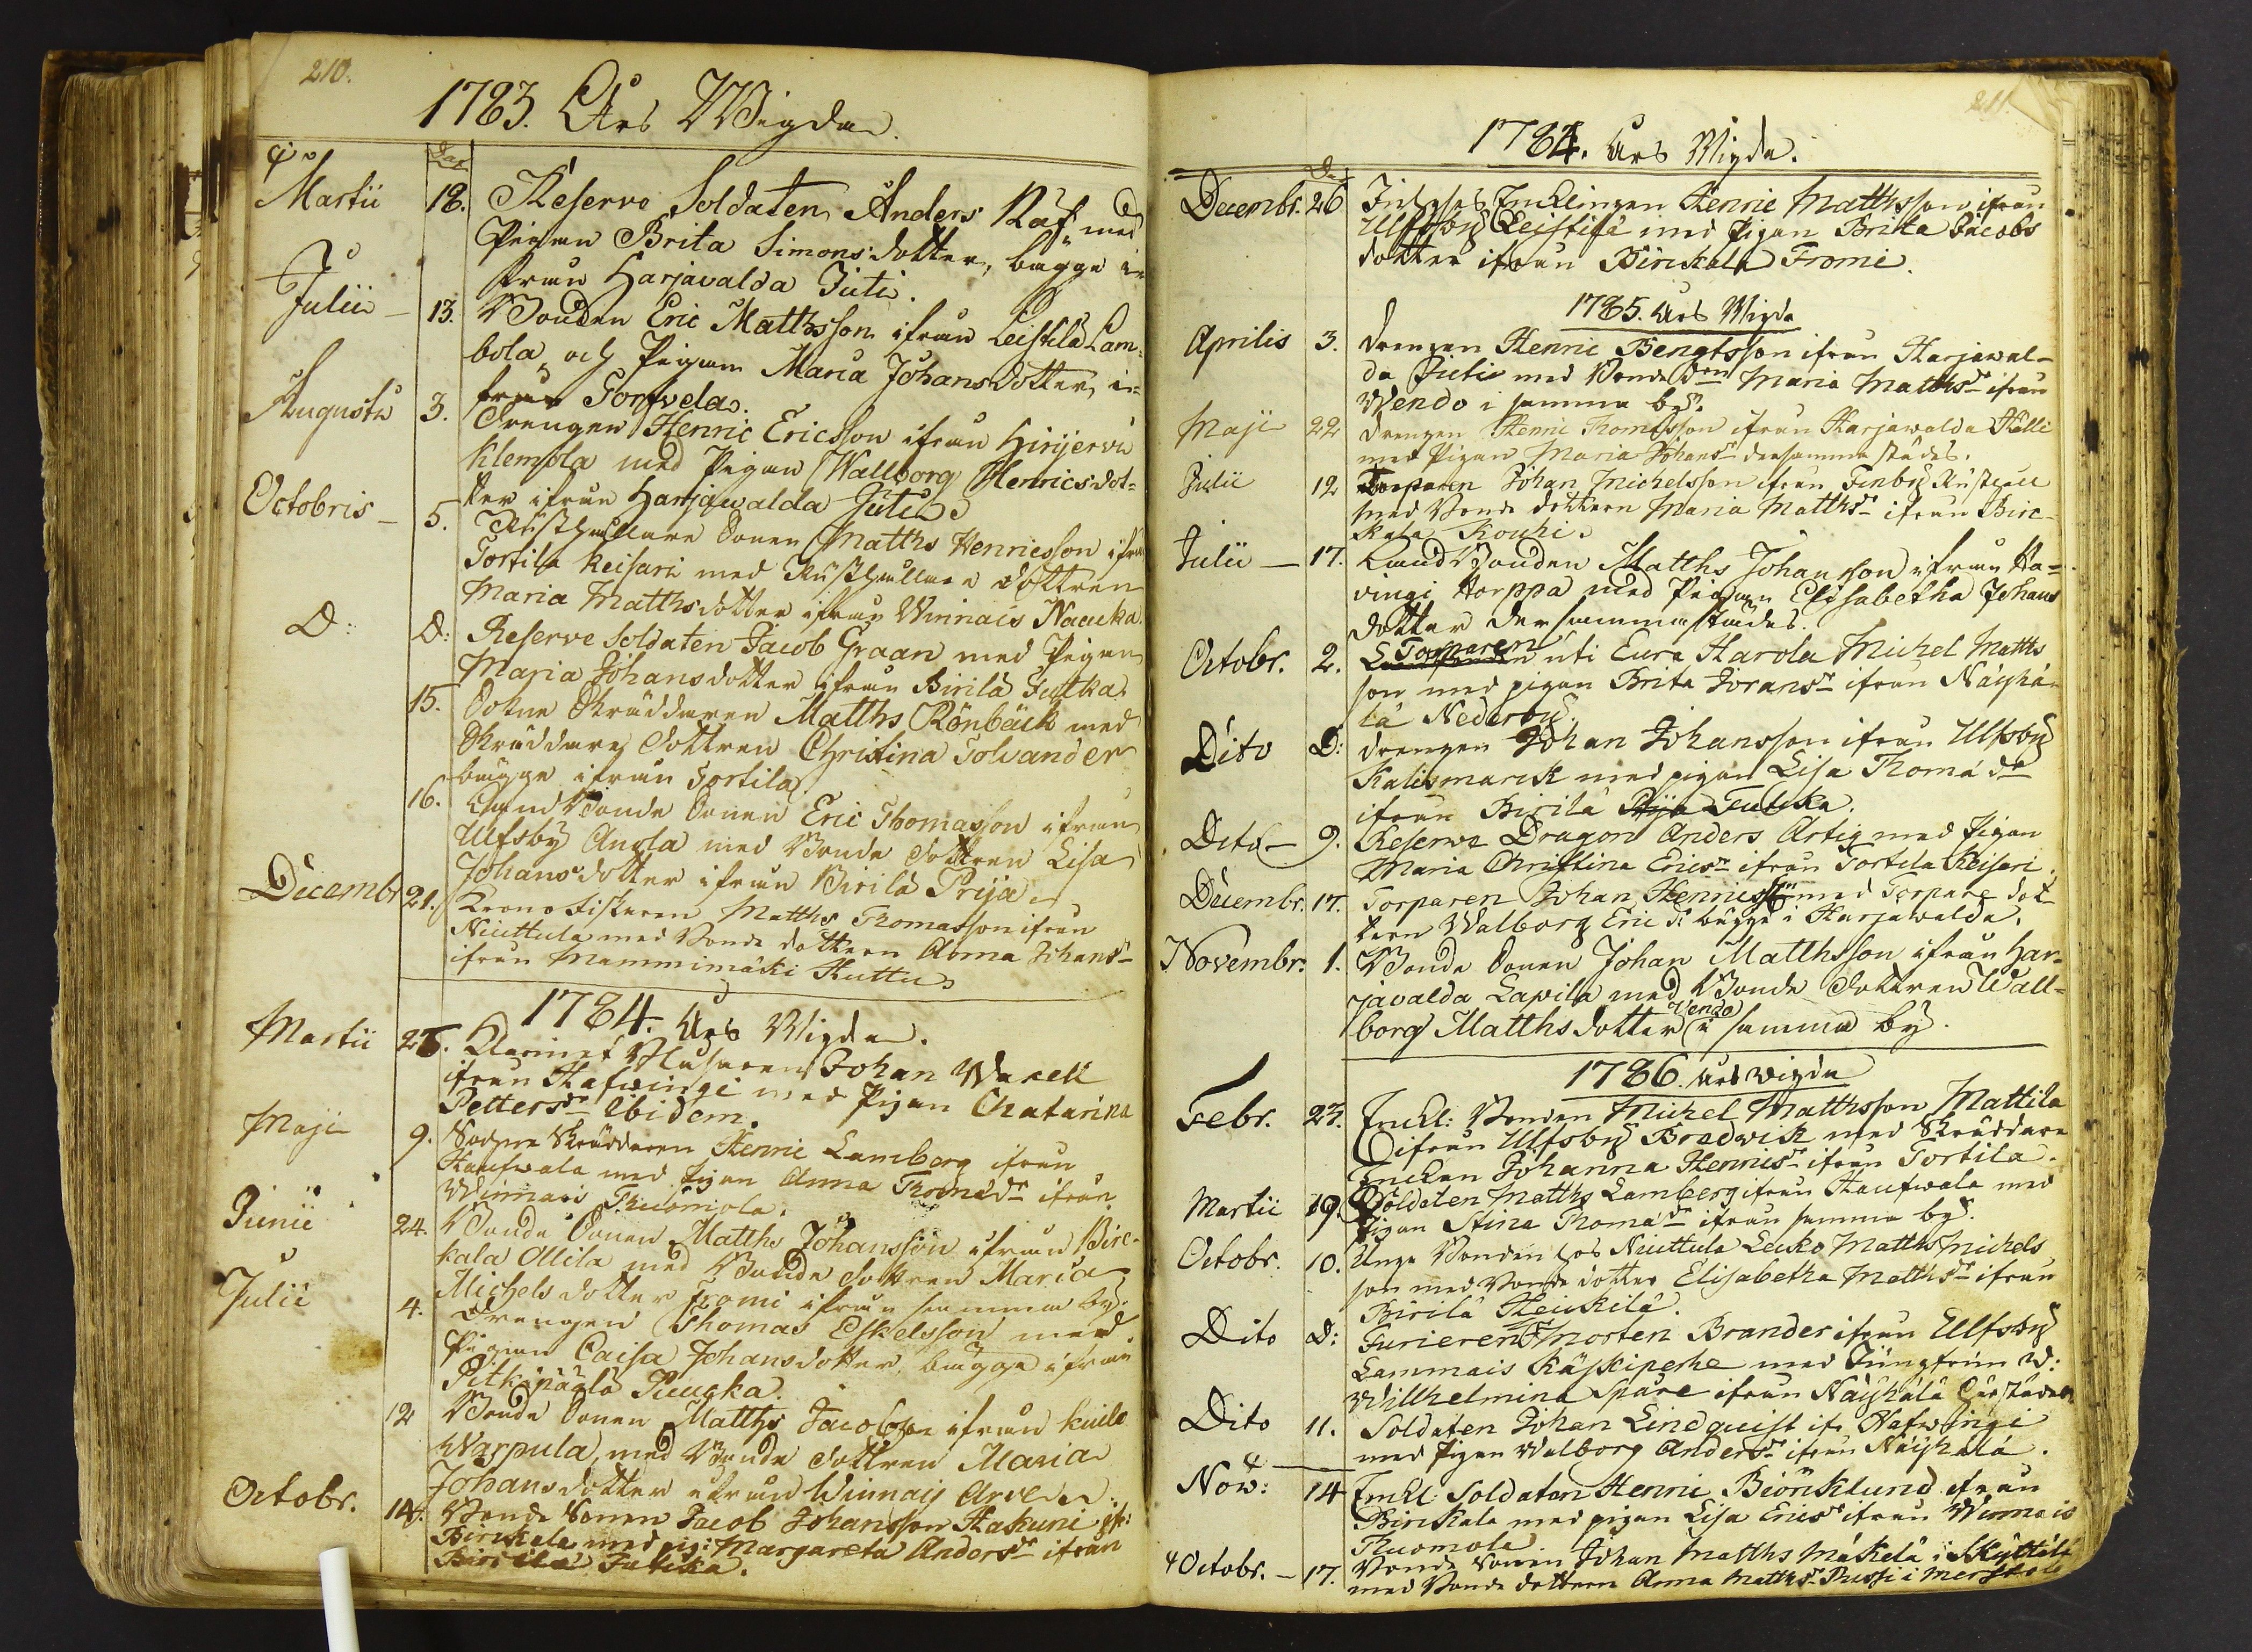 210.
1783. Års Wigda
Dag
Martii 18. Reserve Soldaten Anders Räf med
Pigan Brita Simonsdotter, bägge i
från Harjavalda Juti.
Julii 13. Bonden Eric Mattsson ifrån Leistilä Lam-
bola och Pigan Maria Johansdotter, i-
från Torfvela.
Augusti 3. Drengen Henric Ericsson ifrån Hirijervi
Klemola med Pigan Wallborg Henricsdot-
ter ifrån Harjawalda Juti
Octobris 5. Rusthållare Sonen Matths Henricsson ifrån
Tortila Keisari med Rusthållare dottren
Maria Matthsdotter ifrån Winnais Naucka
D: D: Reserve Soldaten Jacob Graan med Pigan
Maria Johansdotter ifrån Birilä Jutika.
15. Sokne Skräddaren Matths Rönbäck med
Skräddare dottren Christina Tolvander
bägge ifrån Tortila
16. Land Bonde Sonen Eric Thomasson ifrån
Ulfsby Anola med Bonde dottren Lisa
Johansdotter ifrån Birilä Prija
Decembr 21. Krono Fiskaren Matths Thomasson ifrån
Niuttula med Bonde dottren Anna Johansdr
ifrån Mammimäki Kuttu
1784. Års Wigda.
Martii 25. Husaren Johan Warell
ifrån Hafwingi med Pigan Chatarina
Pettersdr Ibidem.
Maji 9. Sockne Skräddaren Henric Lamberg ifrån
Haufwala med Pigan Anna Thomædr ifrån
Winnais Thuomola.
Junii 24. Bonde Sonen Matths Johansson ifrån Birc-
kala Ollila med Bonde dottren Maria
Michelsdotter Fromi ifrån samma by.
Julii 4. Drengen Thomas Eskelsson med
Pigan Caisa Johansdotter, bägge ifrån
Pitkipäälä Puucka.
12 Bonde Sonen Matths Jacobsson ifrån Kiule
Warpula, med Bonde dottren Maria
Johansdotter ifrån Winnais Arve
Octobr. 14. Bonde Sonen Jacob Johansson Hakuni ifr:
Birckala med pig: Margareta Andersdr ifrån
Birilä Jutika.
211.
1784. Års Wigda.
Dag
Decembr. 26 Enklingen Henric Matthsson ifrån
Ulfsby Leistilä med Pigan Brita Jacobs
dotter ifrån Birckala Fromi.
1785. Års Wigda
Aprilis 3. Drengen Henric Bengtsson ifrån Harjawal-
da Juti med Bonde Drn Maria Matthsdr ifrån
Wendo i samma by.
Maji 22 Drengen Henric Thomasson ifrån Harjawalda Hälli
med Pigan Maria Johansdr dersammastädes.
Julii 12 Torparen Johan Michelsson ifrån Finby Rusthåll
med Bonde dottren Maria Matthsdr ifrån Birc-
kala Kouhi.
Julii 17. Land Bonden Matths Johansson ifrån Ha-
vingi Horppa med Pigan Elisabetha Johans
dotter dersammastädes.
Octobr. 2. Torparen uti Eura Harola Michel Matths
son med pigan Brita Joransdr ifrån Näyhä-
lä Nederby.
Dito D: Drengen Johan Johansson ifrån Ulfsby
Kalismarck med pigan Lisa Thomædr
ifrån Birilä Prija Jutika.
Dito 9. Reserve Dragon Anders Artig med Pigan
Maria Christina Ericsdr ifrån Tortila Keisari.
Decembr. 17. Torparen Johan Henricsson med Torpare dot-
tren Walborg Eric d: bägge i Harjawalda.
Novembr: 1. Bonde Sonen Johan Matthsson ifrån Har-
javalda Lawila med Bonde dottren Wall-
borg Matthsdotter Vendo i samma by.
1786. Års wigda
Febr. 23. Enckl: Bonden Michel Matthsson Mattila
ifrån Ulfsby Bredwik med Skräddare
Enckan Johanna Henricsdr ifrån Tortila.
Martii 19. Soldaten Matths Lamberg ifrån Haufwala med
pigan Stina Thomædr ifrån samma by.
Octobr. 10. Unga Bonden hos Niuttula Lecko Matths Michels
son med Bonde dotter Elisabetha Matthsdr ifrån
Birilä Heickilä.
Dito D: Furieren Morten Brander ifrån Ulfsby
Lammais Käskiperhe med Jungfrun W:
Willhelmina Spåre ifrån Näyhälä
Dito 11. Soldaten Johan Lindquist ifr. Hafwingi
med Pigan Walborg Andersdr ifrån Näyhälä.
Nov: 14 Enckl Soldaten Henric Biörcklund ifrån
Birckala med pigan Lisa Ericsdr ifrån Winnais
Thuomola.
Octobr. 17. Bonde Sonen Johan Matths Mäkelä i Skyttälä
med Bonde dottren Anna Matthsdr Pussi i Merstola